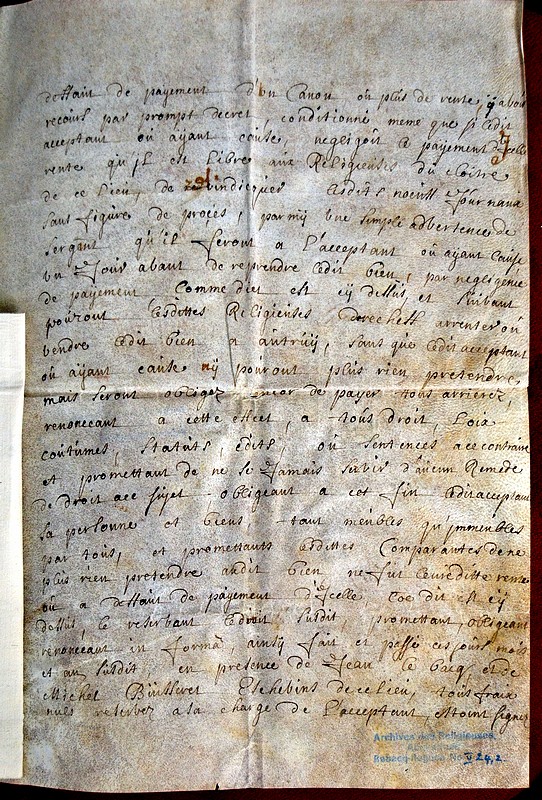 deffaut de payement d'un Canon où plus de rente, y avoir
recours par prompt decret, conditionné meme que si ledit
acceptant où ayant cause, negligoit le payement d'jcelle
rente qu'jl est libre aux Religieuses du Cloitre
de ce lieu, de revindicquer lesdits noeuff Journaux
sans figure de proçes, parmij une simple advertence de
sergant qu'il feront a l'acceptant où ayant Cause
un Jour avant de reprendre ledit bien, par negligence
de payement Comme dict est cÿ dessus et suivant
pouront lesdittes Religieuses derecheff arrenter où
vendre ledit bien a autruÿ, sans que ledit acceptant
où ayant cause nÿ pouront plus rien pretendre,
mais seront obligez encor de payer tous arrierez,
renonceant a cette effect, a tous droit, Loix
coutumes, statuts, edits, où sentences ace contraire
et promettant de ne se Jamais servir d'aucun Remede
de droit ace sujet obligeant a cet fin leditacceptant
sa personne et biens tant meubles qu'jmmeubles
par tous, et promettants lesdittes Comparantes de ne
plus rien pretendre audit bien ne fut leurditte rente
où a deffaut de payement d'jcelle, Coe dit est cÿ
dessus, le reservant ledroit susdit, promettant, obligeant
renonceant in formâ, ainsÿ fait et passé ces jours mois
et an susdit en presence de Jean le bacq et de
Michel Eschevins de ce lieu, tous fraix
nuls reservez ala charge de l'acceptant, étoint signez
Archives des Religieuses
Rebecq-Rognon No V 24,2.